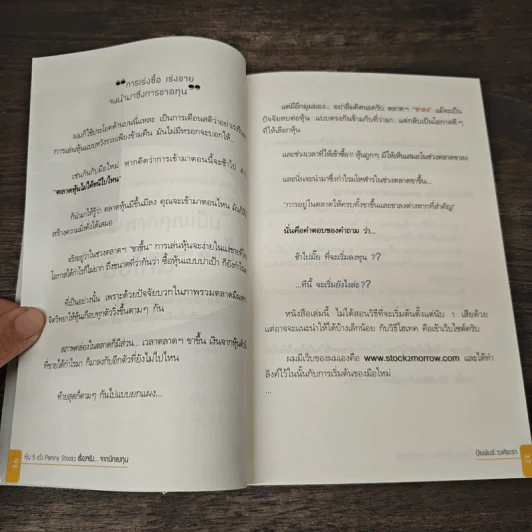 "การเร่งซื้อ เร่งขาย
จนนำมาซึ่งการขาดทุน"
ผมก็ใช้ประโยคด้านบนนี้แหละ เป็นการเตือนสติว่าอย่าเร่งรีบ
การเล่นหุ้นแบบหวังรวยเพียงข้ามคืน มันไม่มีหรอกจะบอกให้...
เช่นกันกับมือใหม่ หากคิดว่าการเข้ามาตอนนี้จะช้าไป
"ตลาดหุ้นไม่ได้หนีไปไหน"
ก็นำมาให้รู้ว่า ตลาดหุ้นมีขึ้นมีลง คุณจะเข้ามาตอนไหน มันก็
สร้างความมั่งคั่งได้เสมอ
จริงอยู่ว่าในช่วงตลาดฯ "ขาขึ้น" การเล่นหุ้นจะง่ายในแง่ของ
โอกาสได้กำไรก็ไม่ยาก ถึงขนาดที่ว่ากันว่า ซื้อหุ้นแบบปาเป้า ก็ยังกำไร
ที่เป็นอย่างนั้น เพราะด้วยปัจจัยบวกในภาพรวมตลาดมีผล
จิตวิทยาให้หุ้นเกือบทุกตัววิ่งขึ้นตามๆ กัน
สภาพคล่องในตลาดก็มีส่วน... เวลาตลาดฯ ขาขึ้น เงินจากหุ้นตัว
ที่ขายได้กำไรมา ก็มาลงกับอีกตัวที่ยังไม่ไปไหน
ท้ายสุดก็ตามๆ กันไปแบบยกแผง...
หุ้น 5 เด้ง Penny Stocks เรื่องจริง... จากนักลงทุน
แต่มีอีกมุมมอง... อย่าลืมคิดนะครับ ตลาดฯ "ขาลง" แม้จะเป็น
ปัจจัยลบต่อหุ้น แบบตรงกันข้ามกับที่ว่ามา แต่กลับเป็นโอกาสดีๆ
ที่ให้เลือกหุ้น
และช่วงเวลาที่ให้เข้าซื้อ!! หุ้นถูกๆ มีให้เห็นเสมอในช่วงตลาดขาลง
และนั่นจะนำมาซึ่งกำไรมโหฬารในช่วงตลาดขาขึ้น...
"การอยู่ในตลาดให้ครบทั้งขาขึ้นและขาลงต่างหากที่สำคัญ"
นั่นคือคำตอบของคำถาม ว่า...
ช้าไปมั๊ย ที่จะเริ่มลงทุน ??
...ทีนี้ จะเริ่มยังไงล่ะ ??
หนังสือเล่มนี้ ไม่ได้สอนวิธีที่จะเริ่มต้นตั้งแต่นับ 1 เสียด้วย
แต่อาจจะแนะนำให้ได้บ้างเล็กน้อย กับวิธีไฮเทค คือเข้าเว็บไซต์ครับ
ผมมีเว็บของผมเองคือ www.stock2morrow.com และได้ทำ
ลิงค์ไว้ในนั้นกับการเริ่มต้นของมือใหม่
...
ปิยพันธ์ วงศ์ยะรา